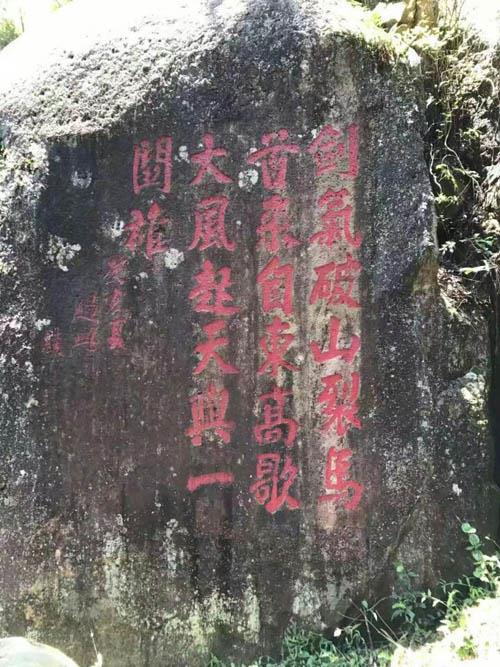 劍氣破山裂馬
首來自東高歌
大風起天與一
鬪雄
夏